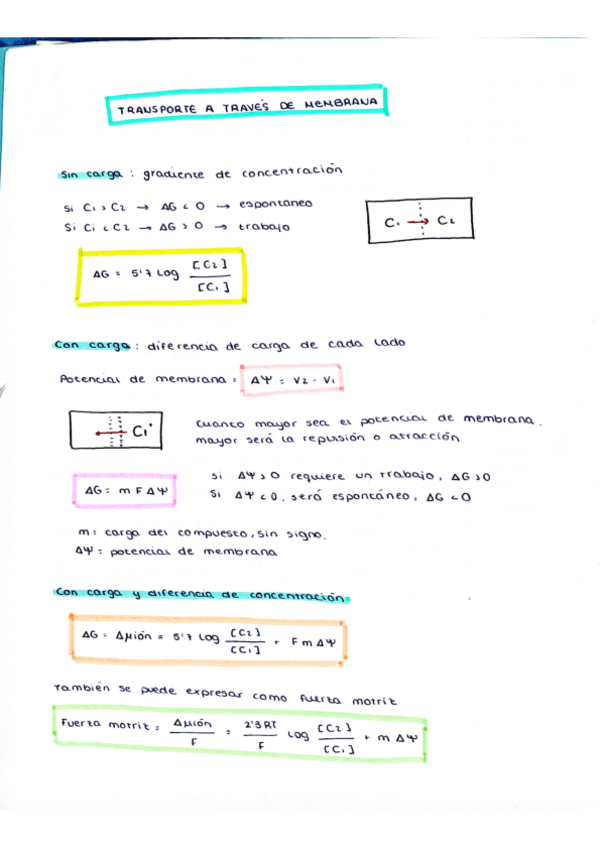 TRANSPORTE A TRAVÉS DE MEMBRANA
Sin carga : gradiente de concentración
Si C1 > C2 → ΔG < 0 → espontaneo
Si C1 < C2 → ΔG > 0 → trabajo
C1 → C2
ΔG = 5'7 log [C2] / [C1]
Con carga : diferencia de carga de cada lado
Potencial de membrana = ΔΨ = V2 - V1
C1+
Cuanto mayor sea el potencial de membrana,
mayor será la repulsión o atracción
ΔG = m F ΔΨ
Si ΔΨ > 0 requiere un trabajo, ΔG > 0
Si ΔΨ < 0, será espontáneo, ΔG < 0
m : carga del compuesto, sin signo.
ΔΨ : potencial de membrana
Con carga y diferencia de concentración
ΔG = Δμión = 5'7 log [C2] / [C1] + F m ΔΨ
También se puede expresar como fuerza motriz
Fuerza motriz = Δμión / F = 2'3RT / F log [C2] / [C1] + m ΔΨ